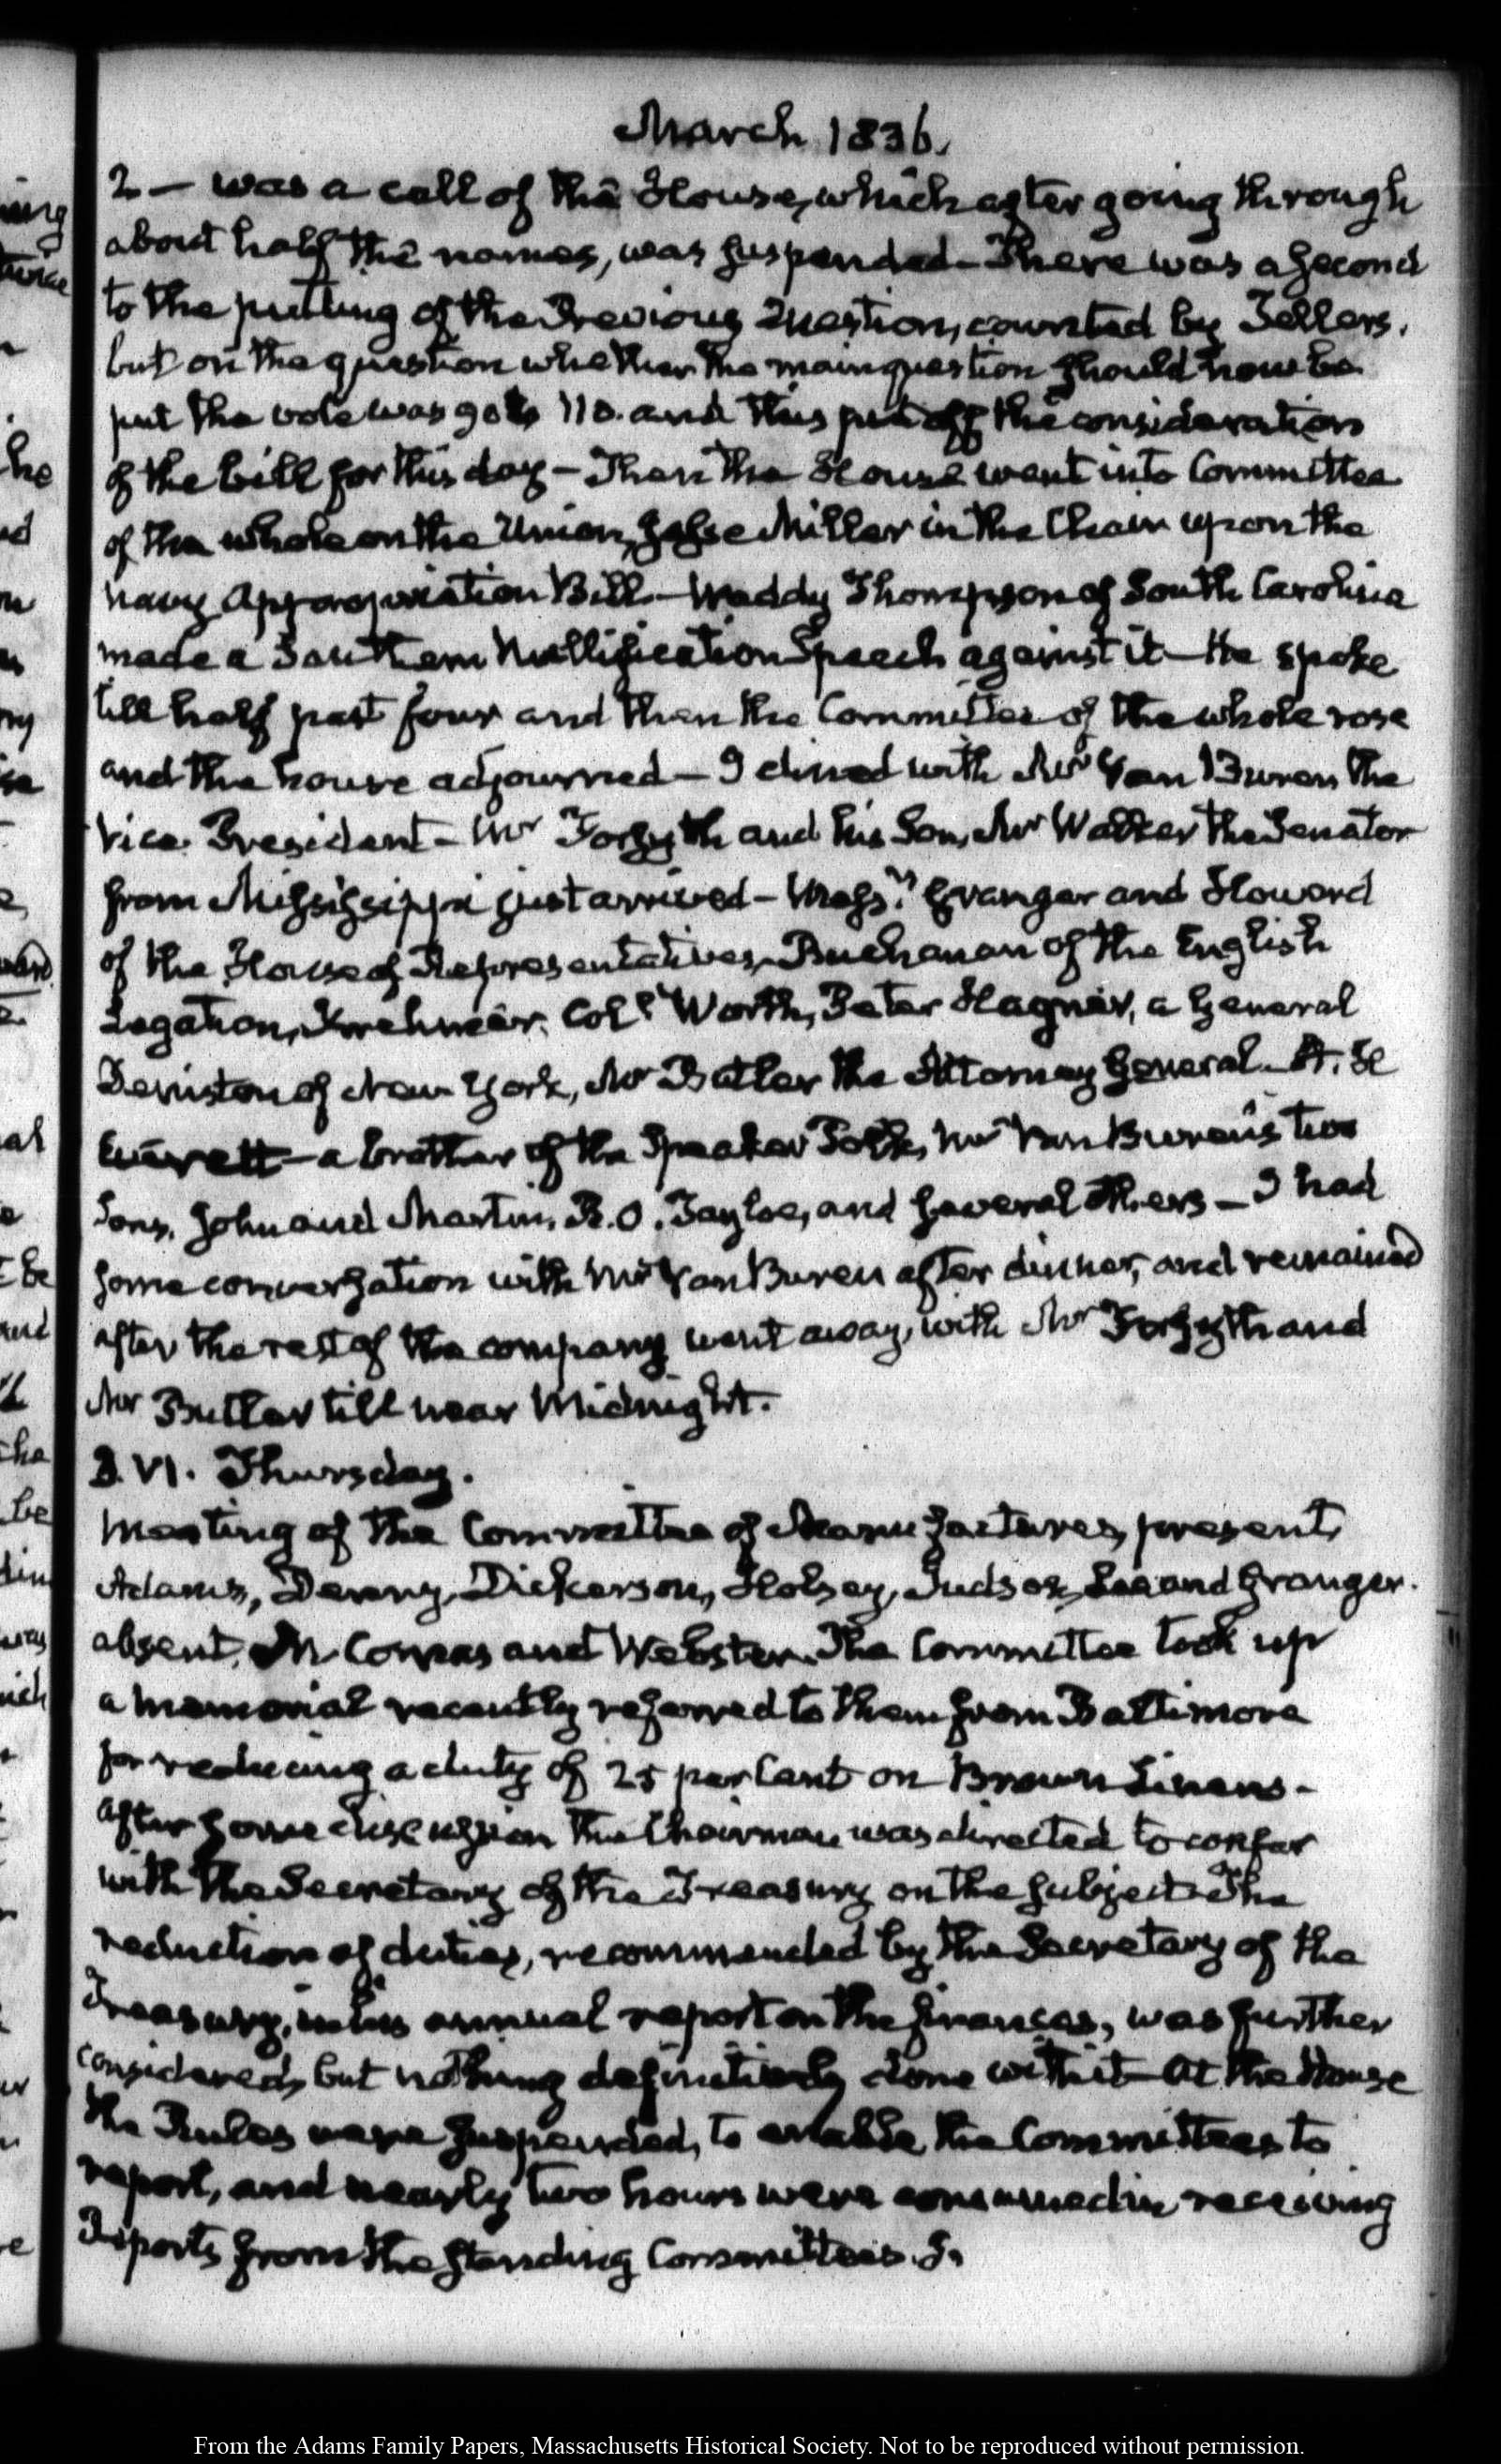 March 1836.
2 — was a call of the House, which after going through
about half the names, was suspended — There was a second
to the putting of the Previous Question, counted by Tellers,
but on the question whether the main question should now be
put the vote was 90 to 110. and thus put off the consideration
of the bill for this day — Then the House went into Committee
of the whole on the Union, Jesse Miller in the Chair upon the
navy Appropriation Bill — Waddy Thompson of South Carolina
made a Southern Nullification Speech against it — He spoke
till half past four and then the Committee of the whole rose
and the house adjourned — I dined with Mr Van Buren the
Vice President — Mr Forsyth and his Son, Mr Walker the Senator
from Mississippi just arrived — Messrs Granger and Howard
of the House of Representatives, Buchanan of the English
Legation, Krehmer, Coll Worth, Peter Hagner, a General
of New York, Mr Butler the Attorney General — A. H.
Everett — a brother of the Speaker Polk, Mr Van Buren's two
Sons, John and Martin, B. O. Tayloe, and several others — I had
some conversation with Mr Van Buren after dinner, and remained
after the rest of the company went away, with Mr Forsyth and
Mr Butler till near Midnight.
3. VI. Thursday.
Meeting of the Committee of Manufactures, present,
Adams, Denny, Dickerson, Holsey, Judson, Lee and Granger.
absent, McComas and Webster. The Committee took up
a memorial recently referred to them from Baltimore
for reducing a duty of 25 per Cent on Brown Linens —
After some discussion the Chairman was directed to confer
with the Secretary of the Treasury on the subject — The
reduction of duties, recommended by the Secretary of the
Treasury, in his annual report on the finances, was further
considered, but nothing definitively done with it — At the House
the Rules were suspended, to enable the Committees to
report, and nearly two hours were consumed in receiving
Reports from the standing Committees. J.
From the Adams Family Papers, Massachusetts Historical Society. Not to be reproduced without permission.